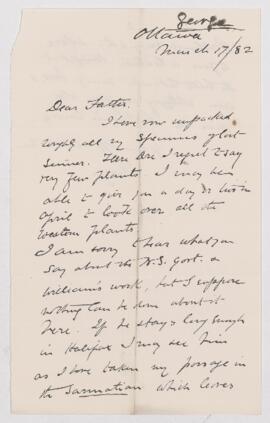 George
Ottawa
March 17/82
Dear Father,
I have now unpacked
roughly all my specimens of last
summer. There are I regret to say
very few plants. I may be
able to give you a day or two in
April to look over all the
Western plants.
I am sorry to hear what you
say about the N.S. Govt. &
William's work, but I suppose
nothing can be done about it
here. If he stays long enough
in Halifax I may see him
as I have taken my passage in
the Sarmatian which leaves